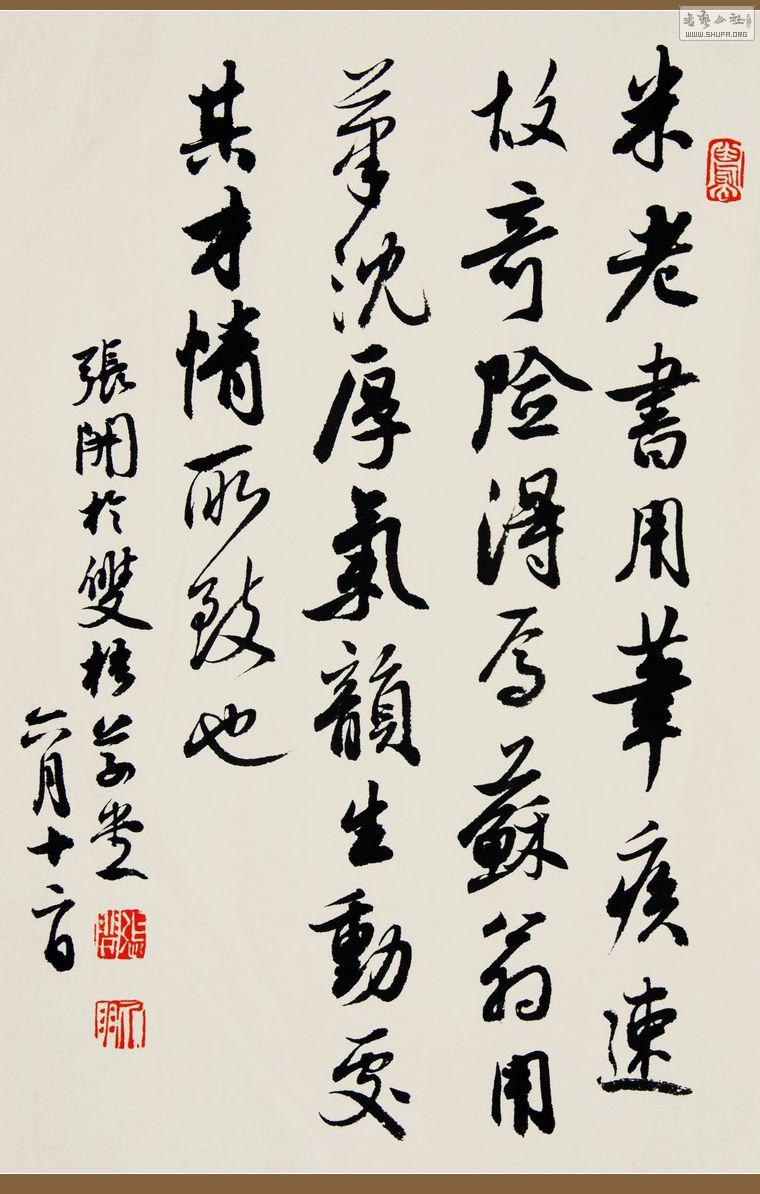 米老書用筆疾速
故奇险得焉蘇翁用
筆沈厚氣韻生動处
其才情所致也
張開於雙梧草堂
六月十六日
書藝公社
WWW.SHUFA.ORG